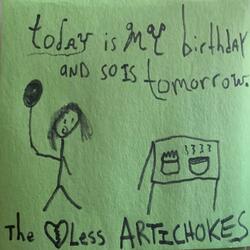 today is my birthday
AND SO IS tomorrow.
The 💔Less ARTICHOKES